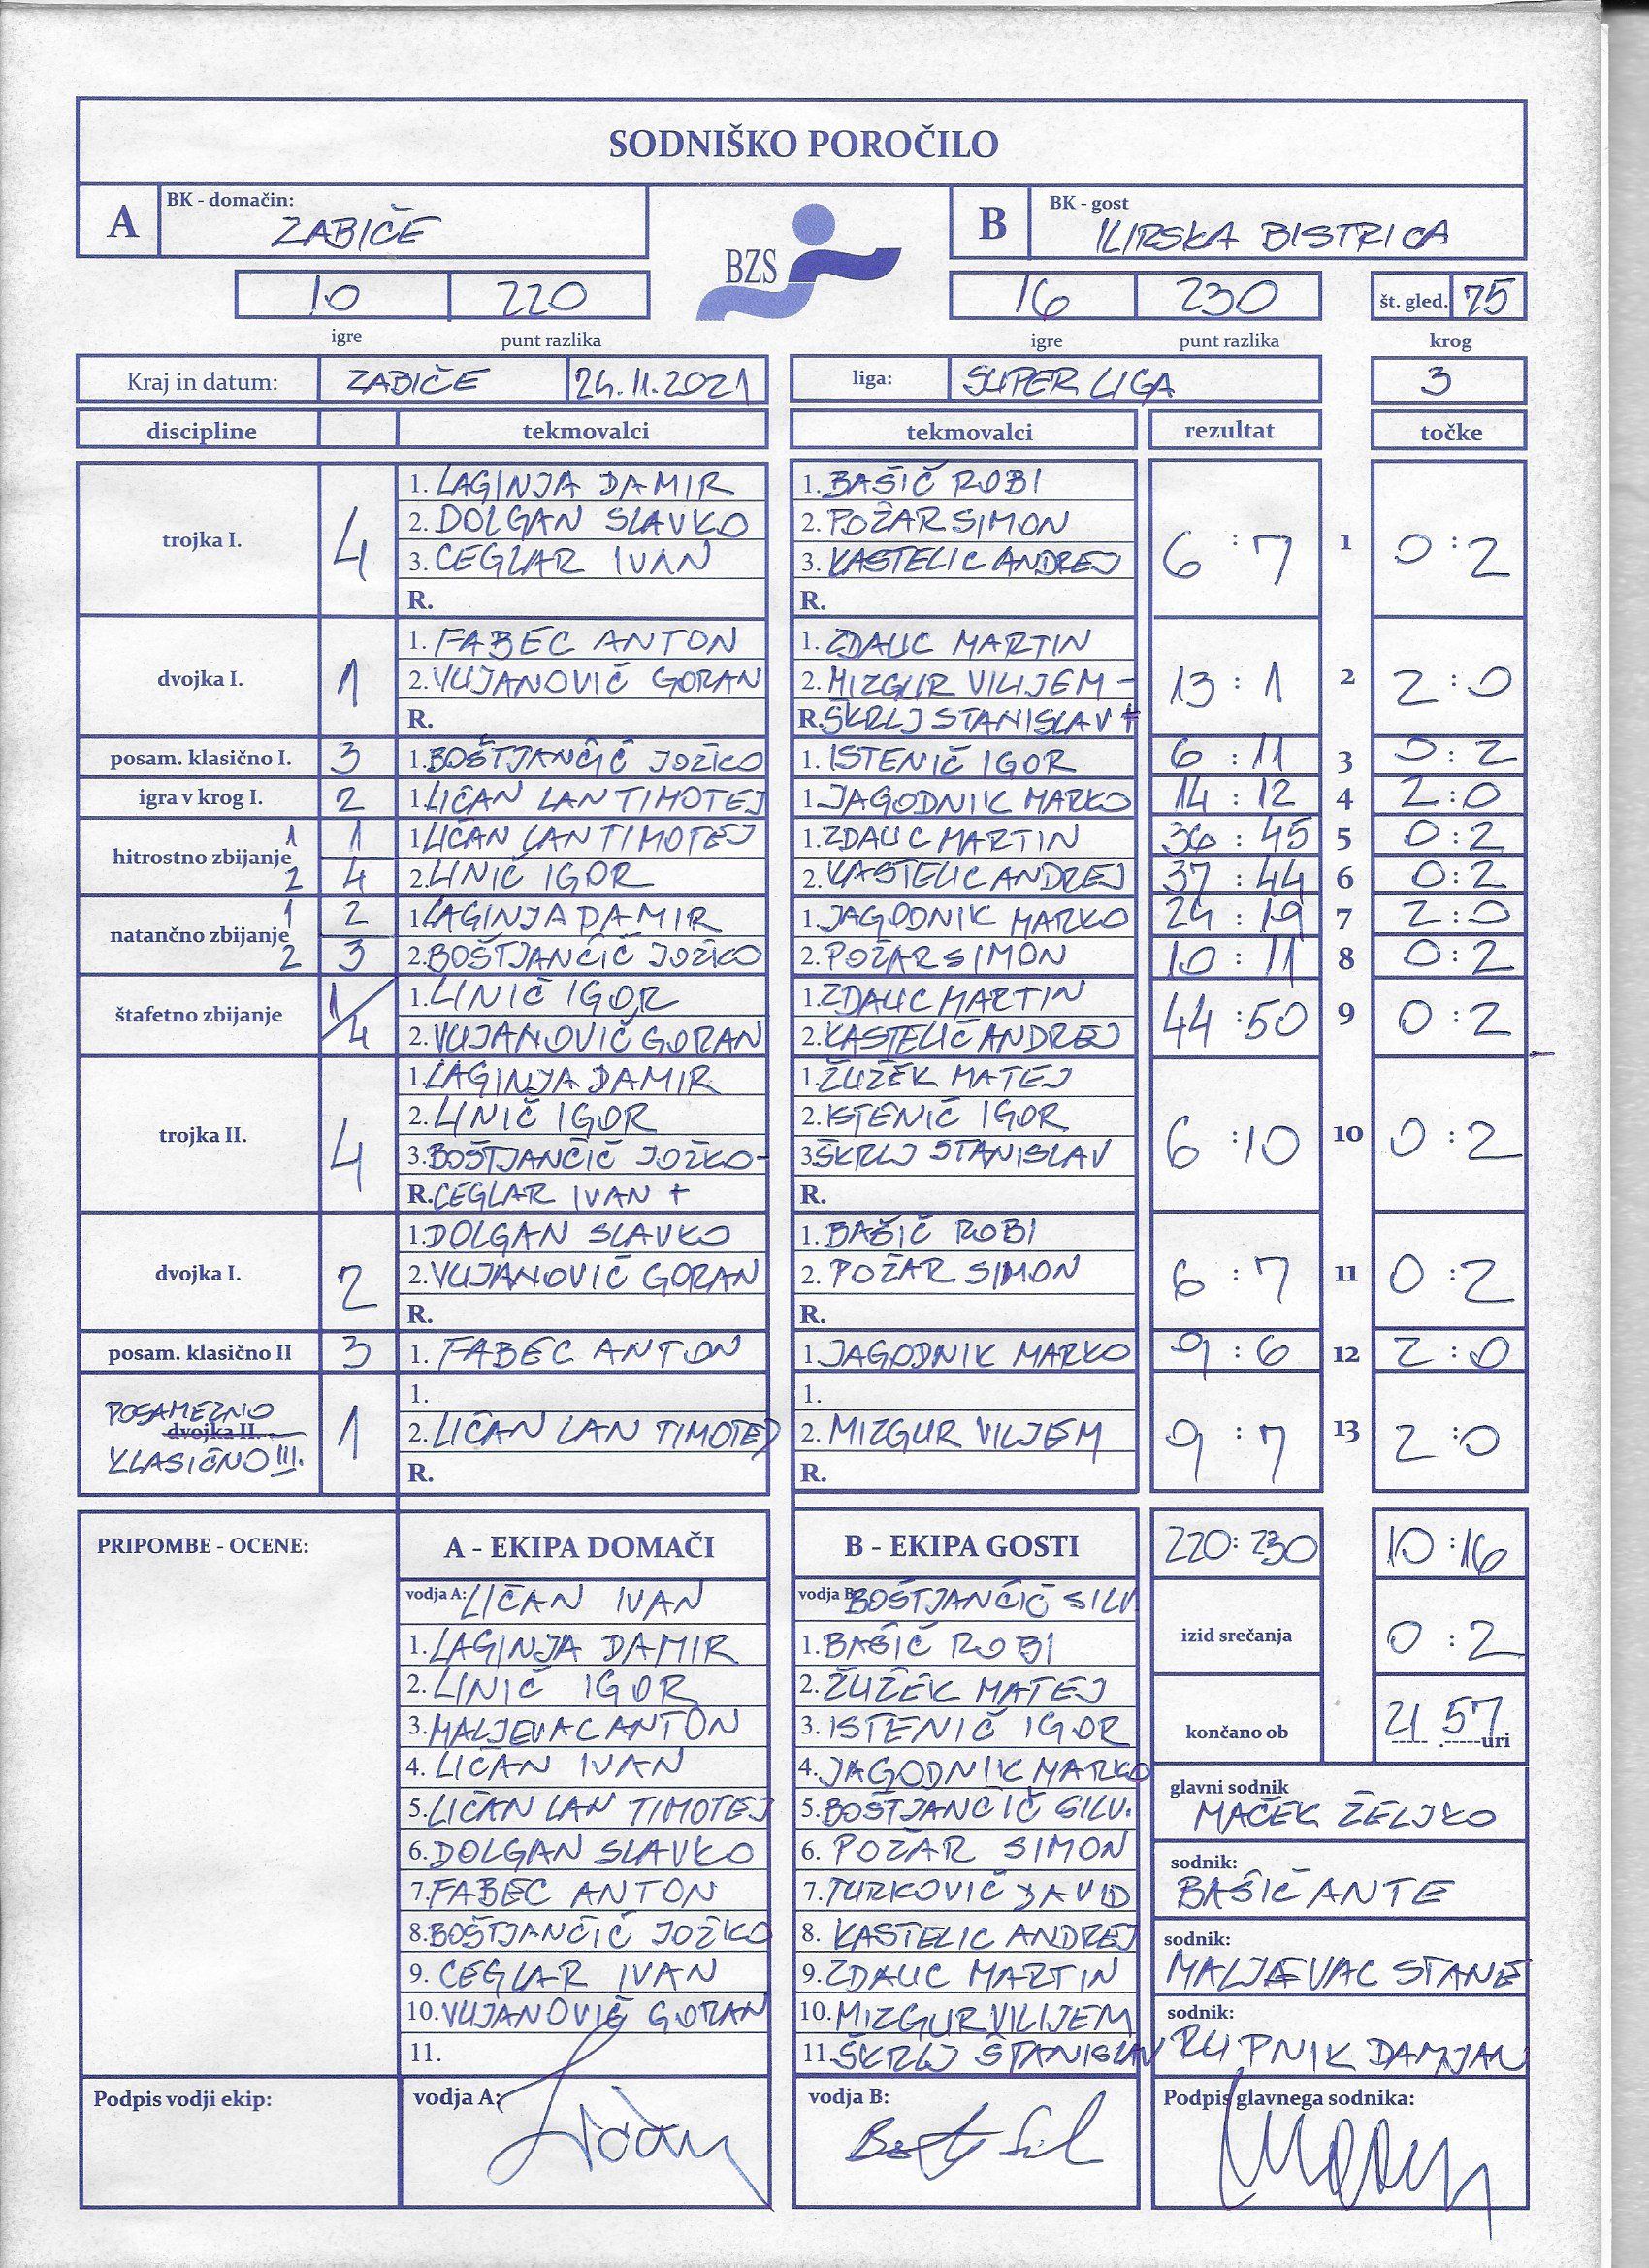 SODNIŠKO POROČILO
A BK - domačin: ZABIČE
BZS
B BK - gost ILIRSKA BISTRICA
10 220 16 230 št. gled. 75
igre punt razlika igre punt razlika krog
Kraj in datum: ZABIČE 26.11.2021 liga: SUPER LIGA 3
discipline tekmovalci tekmovalci rezultat točke
trojka I. 4 1. LAGINJA DAMIR 1. BAŠIČ ROBI 6 : 7 1 0 : 2
2. DOLGAN SLAVKO 2. POŽAR SIMON
3. CEGLAR IVAN 3. KASTELIC ANDREJ
R. R.
dvojka I. 1 1. FABEC ANTON 1. ZDALIC MARTIN 13 : 1 2 2 : 0
2. VUJANOVIČ GORAN 2. MIZGUR VILIJEM -
R. R. ŠKRLJ STANISLAV +
posam. klasično I. 3 1. BOŠTJANČIČ JOŽKO 1. ISTENIČ IGOR 6 : 11 3 0 : 2
igra v krog I. 2 1. LIČAN LAN TIMOTEJ 1. JAGODNIK MARKO 14 : 12 4 2 : 0
hitrostno zbijanje 1 1 1. LIČAN LAN TIMOTEJ 1. ZDALIC MARTIN 36 : 45 5 0 : 2
2 4 2. LINIČ IGOR 2. KASTELIC ANDREJ 37 : 44 6 0 : 2
natančno zbijanje 1 2 1. LAGINJA DAMIR 1. JAGODNIK MARKO 24 : 19 7 2 : 0
2 3 2. BOŠTJANČIČ JOŽKO 2. POŽAR SIMON 10 : 11 8 0 : 2
štafetno zbijanje 1/4 1. LINIČ IGOR 1. ZDALIC MARTIN 44 : 50 9 0 : 2
2. VUJANOVIČ GORAN 2. KASTELIČ ANDREJ
trojka II. 4 1. LAGINJA DAMIR 1. ŽUŽEK MATEJ 6 : 10 10 0 : 2
2. LINIČ IGOR 2. ISTENIČ IGOR
3. BOŠTJANČIČ JOŽKO - 3. ŠKRLJ STANISLAV
R. CEGLAR IVAN + R.
dvojka I. 2 1. DOLGAN SLAVKO 1. BAŠIČ ROBI 6 : 7 11 0 : 2
2. VUJANOVIČ GORAN 2. POŽAR SIMON
R. R.
posam. klasično II 3 1. FABEC ANTON 1. JAGODNIK MARKO 9 : 6 12 2 : 0
POSAMEZNO dvojka II. KLASIČNO III. 1 1. 1. 9 : 7 13 2 : 0
2. LIČAN LAN TIMOTEJ 2. MIZGUR VILJEM
R. R.
PRIPOMBE - OCENE: A - EKIPA DOMAČI B - EKIPA GOSTI 220 : 230 10 : 16
vodja A: LIČAN IVAN vodja B: BOŠTJANČIČ SILV.
1. LAGINJA DAMIR 1. BAŠIČ ROBI izid srečanja 0 : 2
2. LINIČ IGOR 2. ŽUŽEK MATEJ
3. MALJEVAC ANTON 3. ISTENIČ IGOR končano ob 21 57 uri
4. LIČAN IVAN 4. JAGODNIK MARKO
5. LIČAN LAN TIMOTEJ 5. BOŠTJANČIČ SILV. glavni sodnik MAČEK ŽELJKO
6. DOLGAN SLAVKO 6. POŽAR SIMON
7. FABEC ANTON 7. TURKOVIČ DAVID sodnik: BAŠIČ ANTE
8. BOŠTJANČIČ JOŽKO 8. KASTELIC ANDREJ
9. CEGLAR IVAN 9. ZDALIC MARTIN sodnik: MALJEVAC STANE
10. VUJANOVIČ GORAN 10. MIZGUR VILIJEM
11. 11. ŠKRLJ STANISLAV sodnik: RUPNIK DAMJAN
Podpis vodji ekip: vodja A: vodja B: Podpis glavnega sodnika: